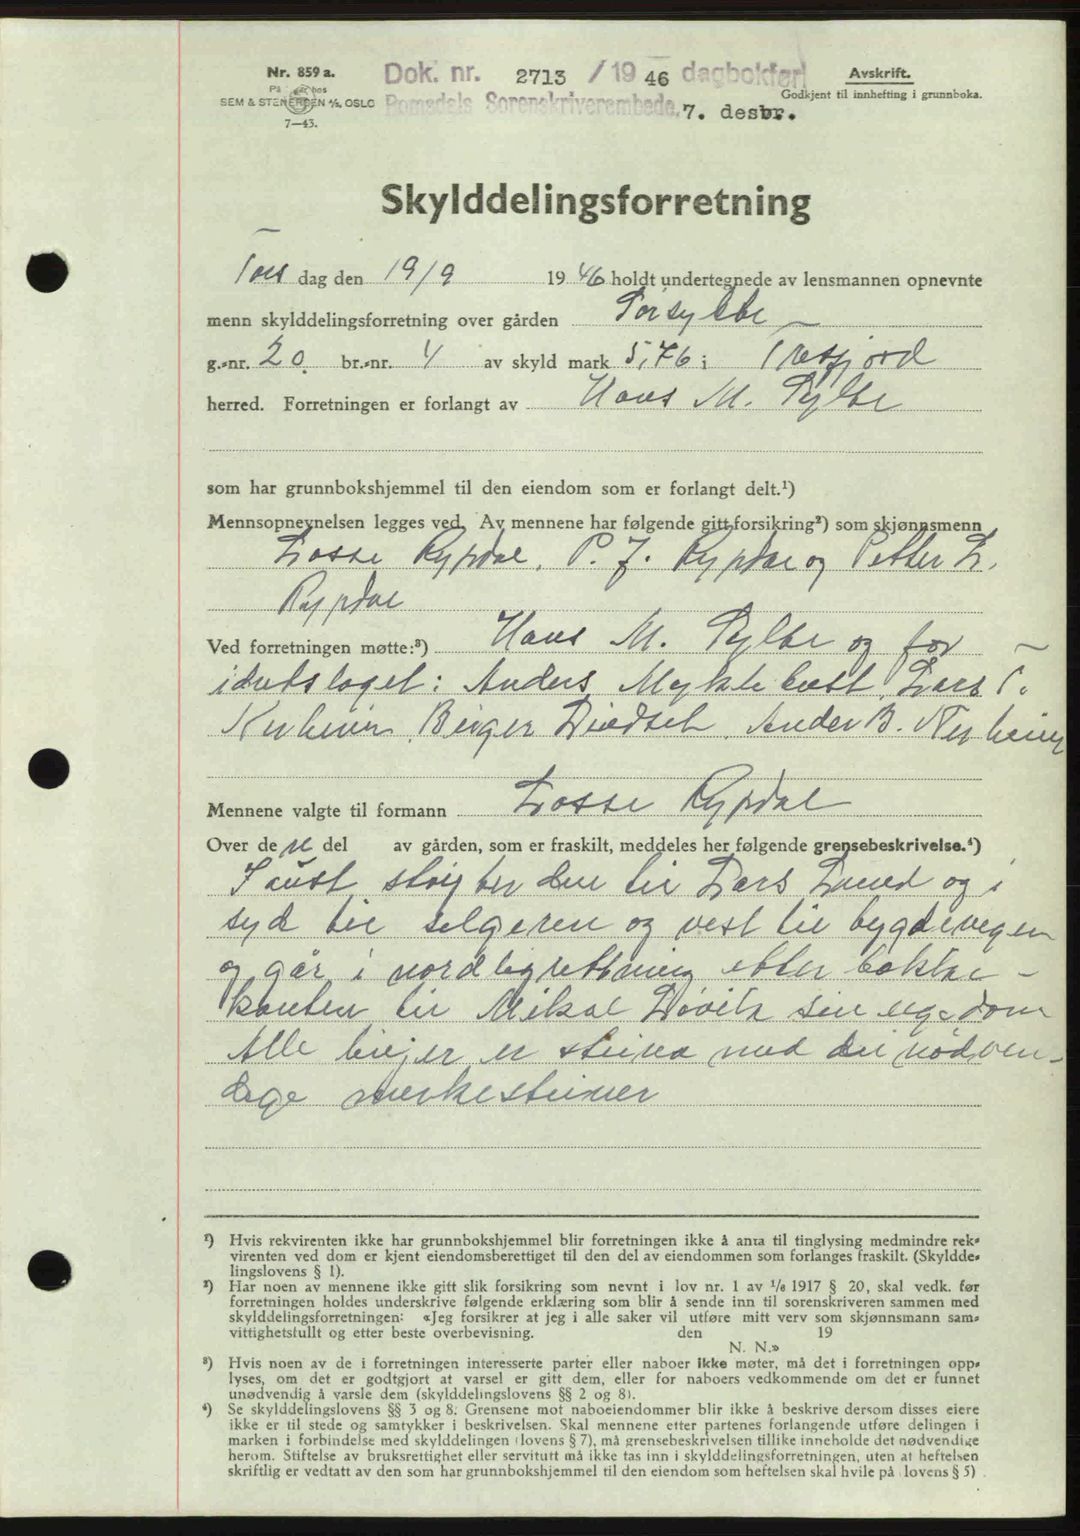 Nr. 859 a.
SEM & STENERSEN A/S, OSLO
7—43.
Dok. nr. 2713 /19 46 dagbokført
Romsdals Sorenskriverembede, 7. desbr.
Avskrift.
Godkjent til innhefting i grunnboka.
Skylddelingsforretning
Tors dag den 19/9 19 46 holdt undertegnede av lensmannen opnevnte
menn skylddelingsforretning over gården Sørsylte
g.-nr. 20 br.-nr. 4 av skyld mark 5,76 i Tresfjord
herred. Forretningen er forlangt av Hans M. Sylte
som har grunnbokshjemmel til den eiendom som er forlangt delt.¹)
Mennsopnevnelsen legges ved. Av mennene har følgende gitt forsikring²) som skjønnsmenn
Lasse Rypdal, P. J. Rypdal og Petter L.
Rypdal
Ved forretningen møtte:³) Hans M. Sylte og for
idrtslaget: Anders Myklebost, Lars T.
Kirheim, Birger Andr B. Kjerheim
Mennene valgte til formann Lasse Rypdal
Over de n del av gården, som er fraskilt, meddeles her følgende grensebeskrivelse.⁴)
I aust støyter den til Lars Lund og i
syd til selgeren og vest til bygdevegen
og går i nordligrettning etter bakke-
kanten til Mikal Løvik sin eigedom
Alle linjer er steina med dei nødven-
dige merkesteiner
¹) Hvis rekvirenten ikke har grunnbokshjemmel blir forretningen ikke å anta til tinglysing medmindre rek-
virenten ved dom er kjent eiendomsberettiget til den del av eiendommen som forlanges fraskilt. (Skyldde-
lingslovens § 1).
²) Har noen av mennene ikke gitt slik forsikring som nevnt i lov nr. 1 av 1/6 1917 § 20, skal vedk. før
forretningen holdes underskrive følgende erklæring som blir å sende inn til sorenskriveren sammen med
skylddelingsforretningen: «Jeg forsikrer at jeg i alle saker vil utføre mitt verv som skjønnsmann sam-
vittighetsfullt og etter beste overbevisning. den 19
N. N.»
³) Hvis noen av de i forretningen interesserte parter eller naboer ikke møter, må det i forretningen opp-
lyses, om det er godtgjort at varsel er gitt dem, eller for naboers vedkommende om det er funnet
unødvendig å varsle dem (skylddelingslovens §§ 2 og 8).
⁴) Se skylddelingslovens §§ 3 og 8. Grensene mot naboeiendommer blir ikke å beskrive dersom disses eiere
ikke er til stede og samtykker i beskrivelsen. Skal mennene etter partenes forlangende utføre delingen i
marken i forbindelse med skylddelingen (lovens § 7), må grensebeskrivelsen tillike inneholde det nødvendige
herom. Stiftelse av bruksrettighet eller servitutt må ikke tas inn i skylddelingsforretningen, uten at heftelsen
skriftlig er vedtatt av den som har grunnbokshjemmel til den eiendom som heftelsen skal hvile på (lovens § 5)